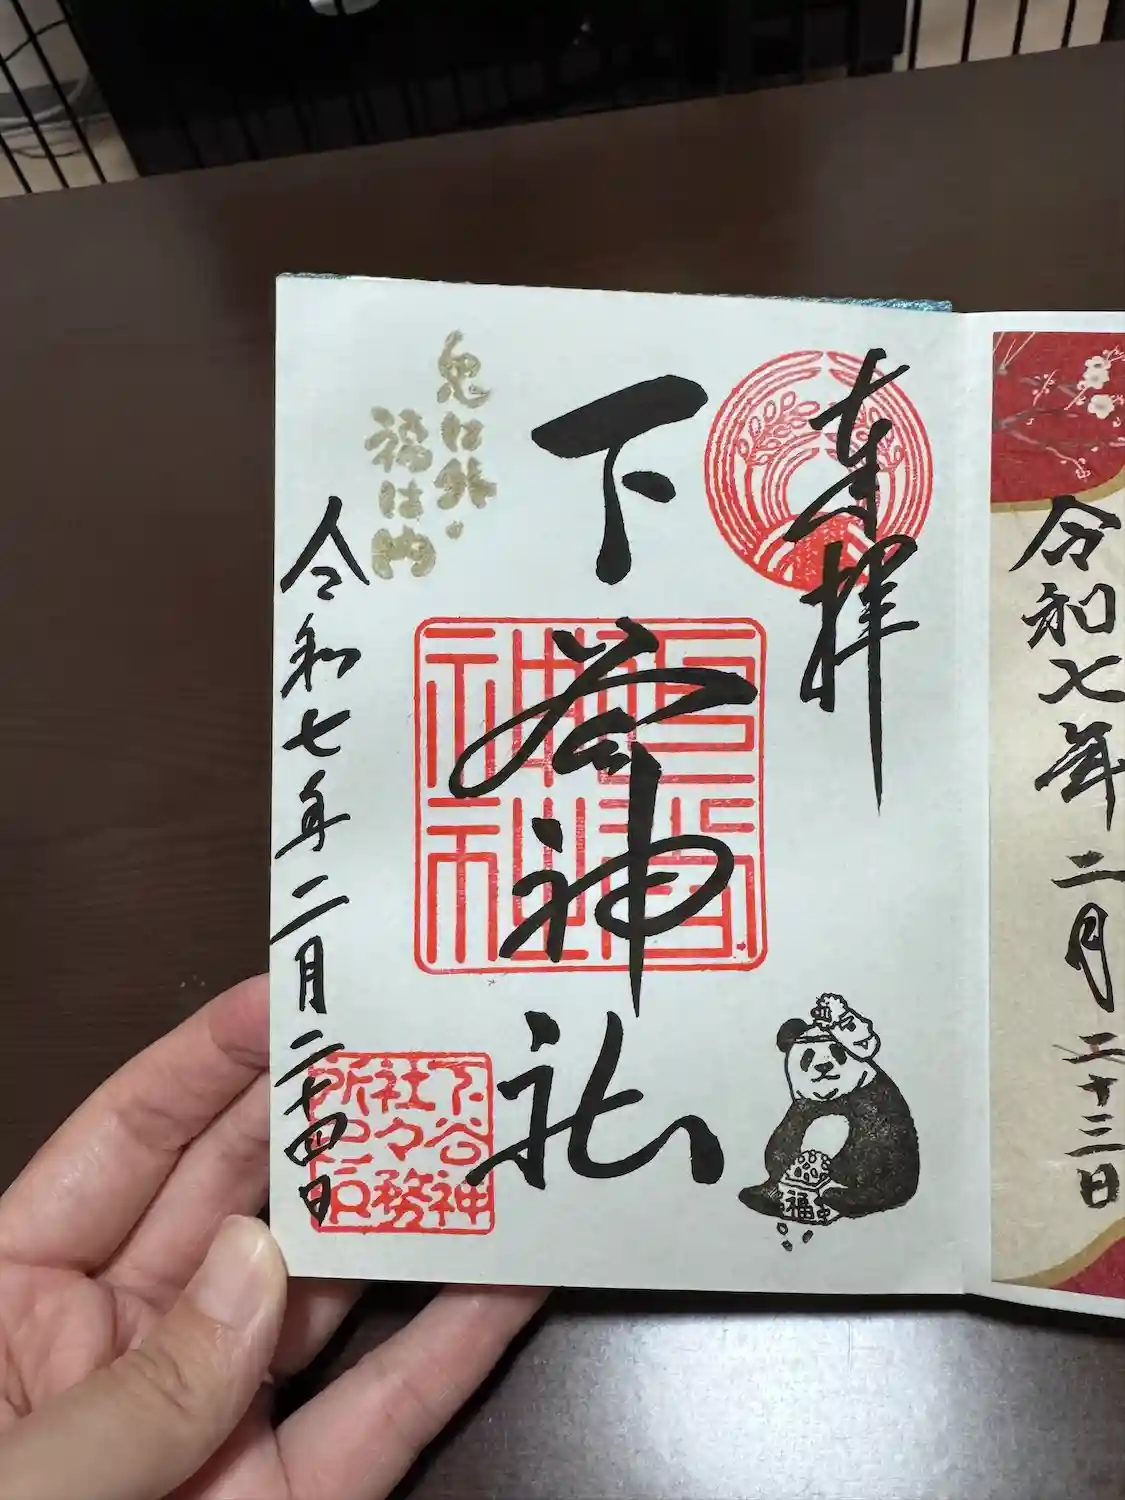 令和七年二月二十三日
奉拝
下谷神社
鬼は外
福は内
令和七年二月二十四日
下谷神
社々務
所之印
福